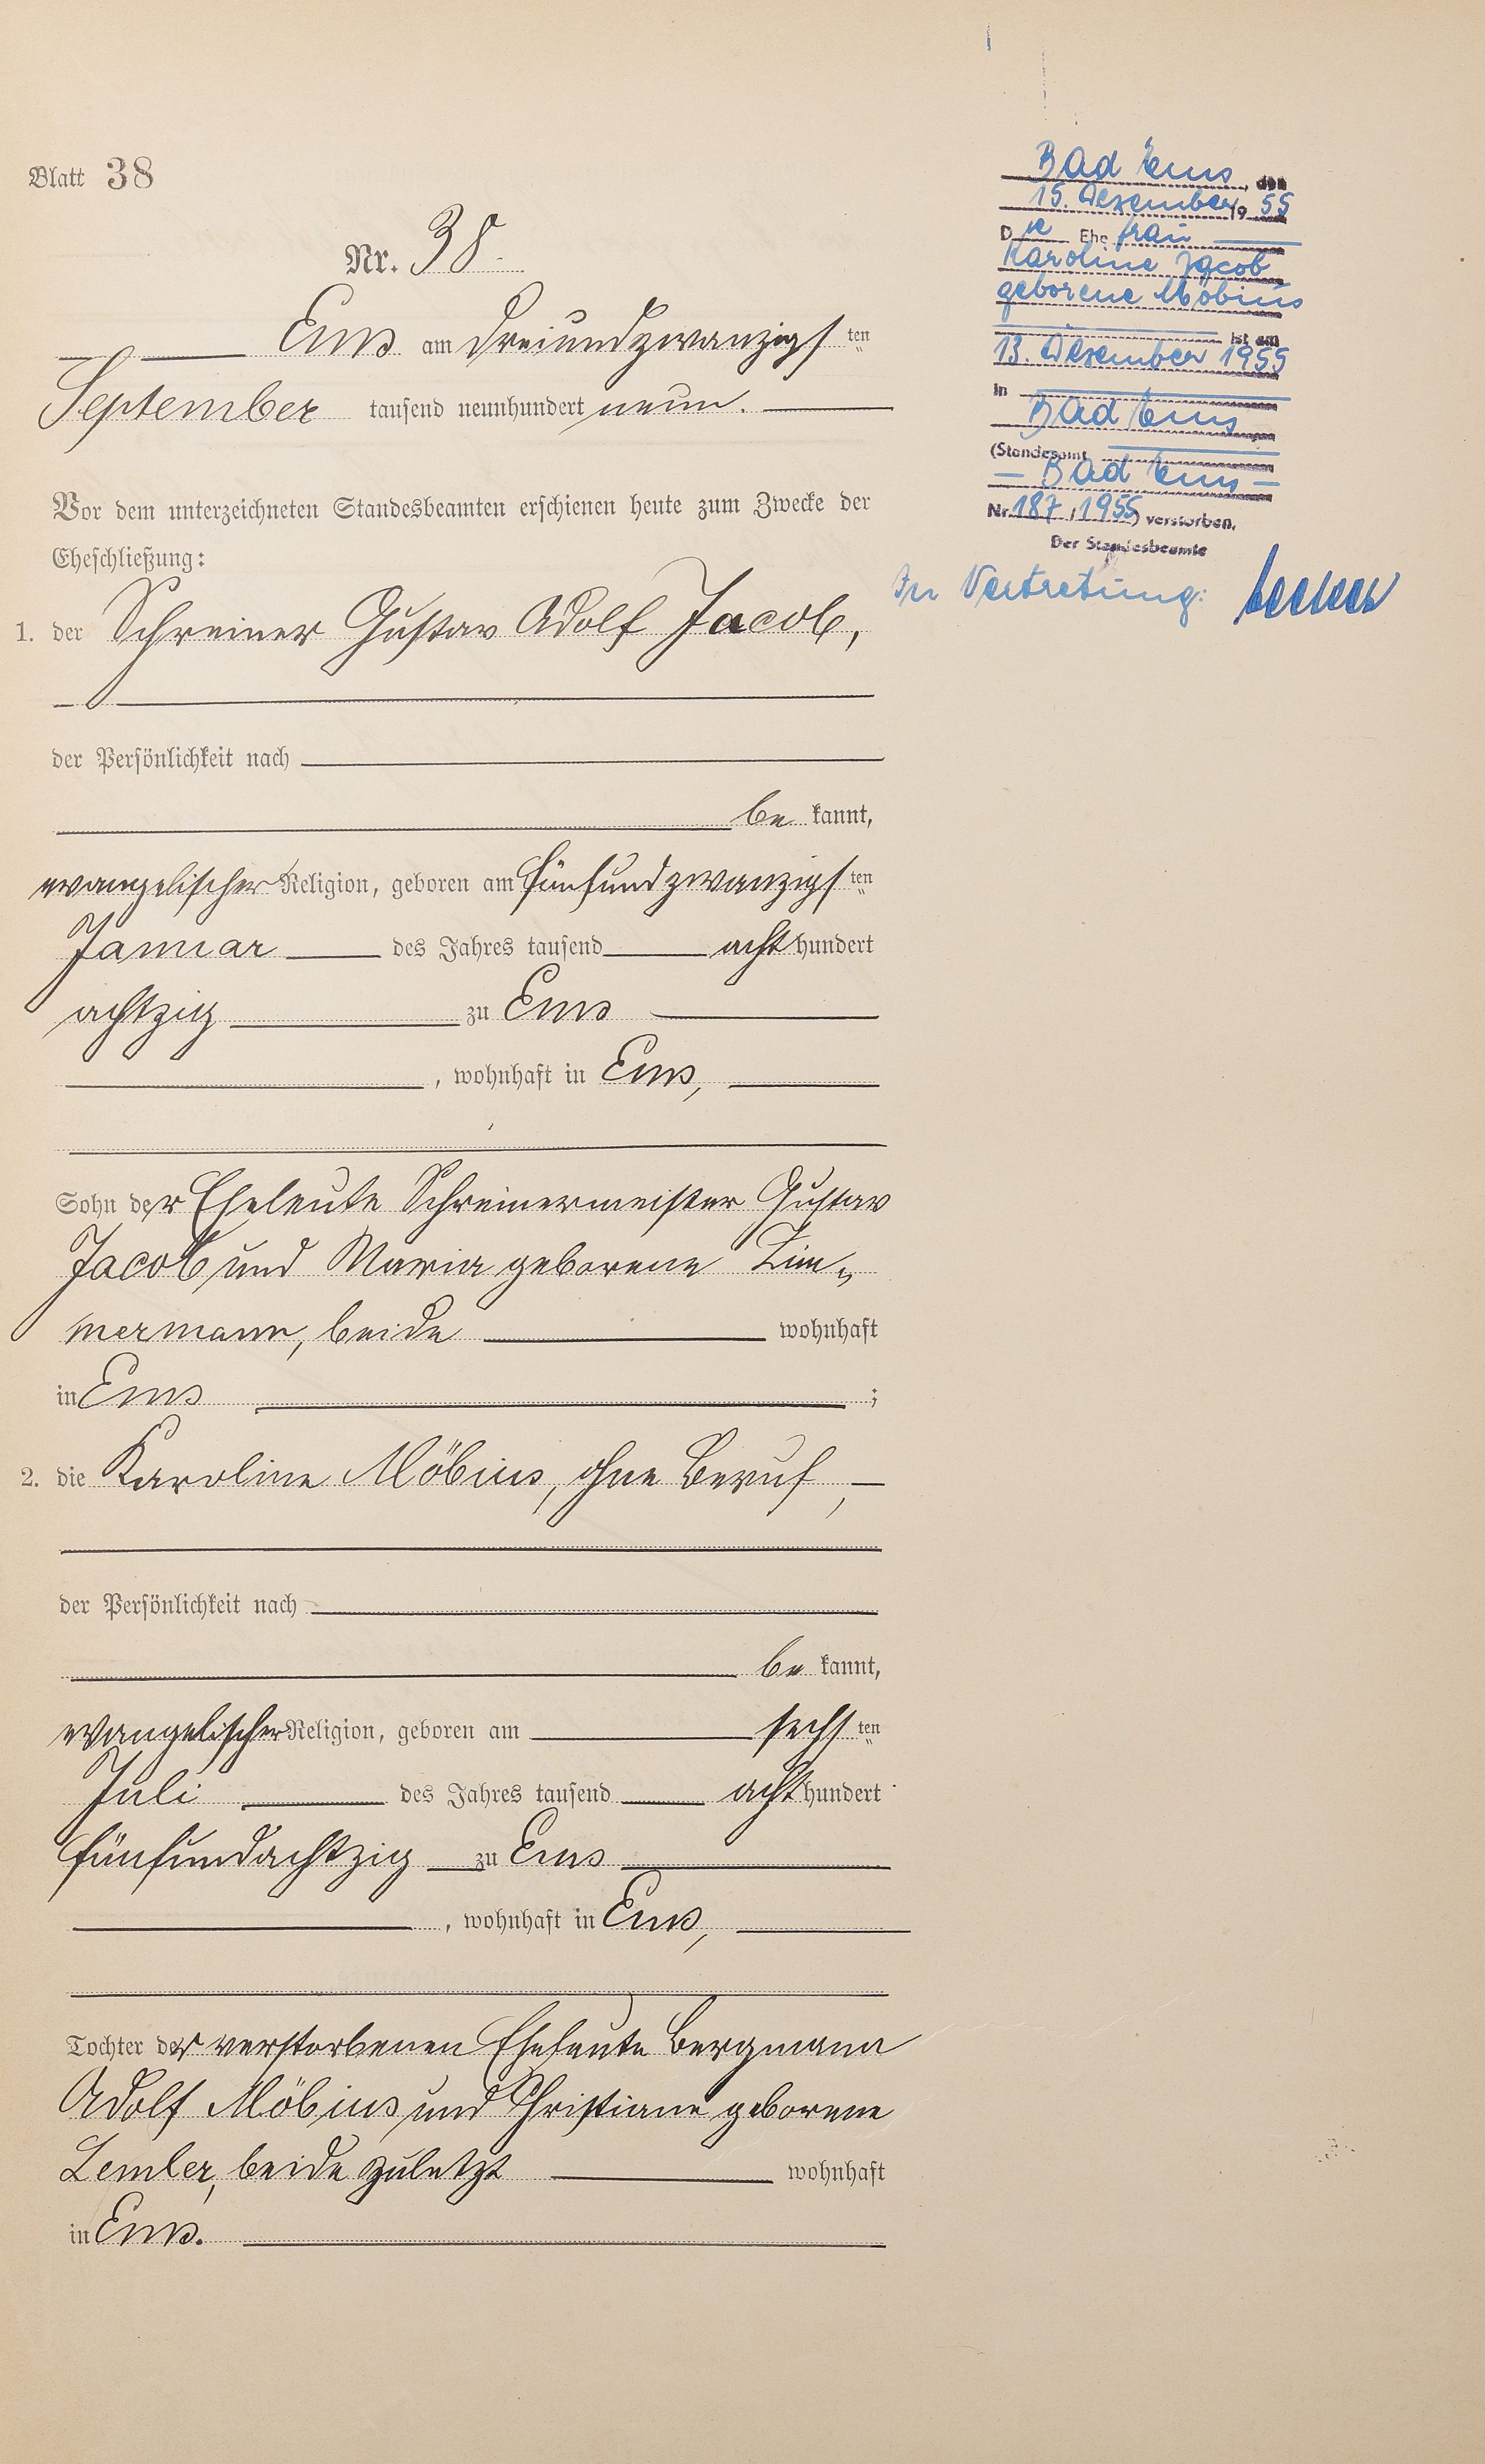 Blatt 38
Nr. 38.
Ems am dreiundzwanzigsten
September tausend neunhundert neun.
Vor dem unterzeichneten Standesbeamten erschienen heute zum Zwecke der
Eheschließung:
1. der Schreiner Gustav Adolf Jacob,
der Persönlichkeit nach
be kannt,
evangelischer Religion, geboren am fünfundzwanzigsten
Januar des Jahres tausend acht hundert
achtzig zu Ems
, wohnhaft in Ems,
Sohn der Eheleute Schreinermeister Gustav
Jacob und Maria geborene Zim-
mermann, beide wohnhaft
in Ems ;
2. die Karoline Möbius, ohne Beruf,
der Persönlichkeit nach
be kannt,
evangelischer Religion, geboren am sechsten
Juli des Jahres tausend acht hundert
fünfundachtzig zu Ems
, wohnhaft in Ems,
Tochter der verstorbenen Eheleute Bergmann
Adolf Möbius und Christiane geborene
Lemler, beide zuletzt wohnhaft
in Ems.
Bad Ems, den
15. Dezember 19 55
Die Ehefrau
Karoline Jacob
geborene Möbius
ist am
13. Dezember 1955
in
Bad Ems
(Standesamt
- Bad Ems -
Nr. 187 / 1955) verstorben.
Der Standesbeamte
In Vertretung: Becker